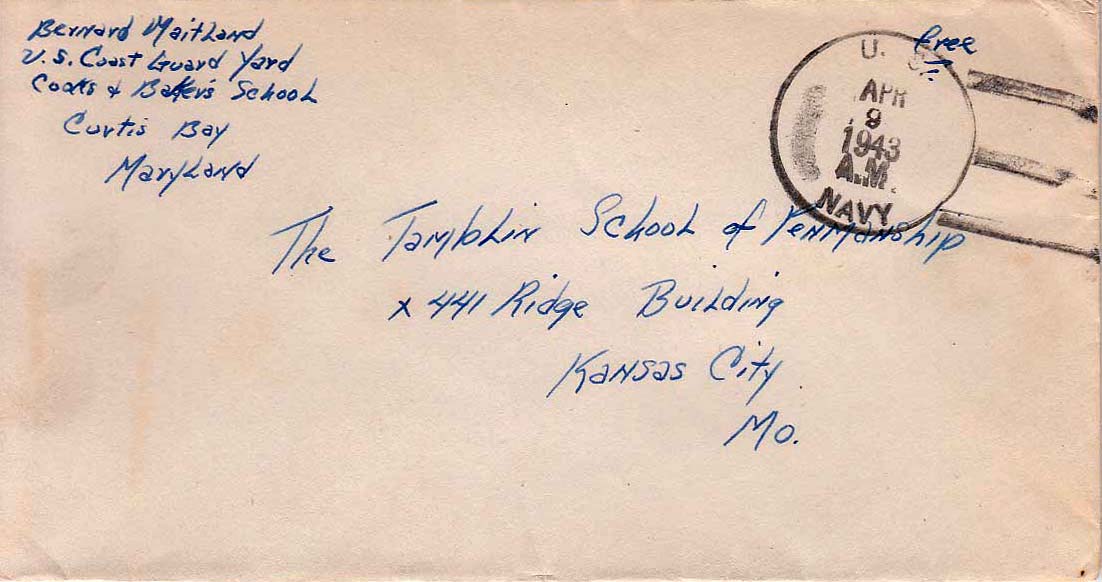 Bernard Maitland
U.S. Coast Guard Yard
Cooks & Bakers School
Curtis Bay
Maryland
Free
U. S.
APR
9
1943
A.M.
NAVY
The Tamblin School of Penmanship
x 441 Ridge Building
Kansas City
Mo.